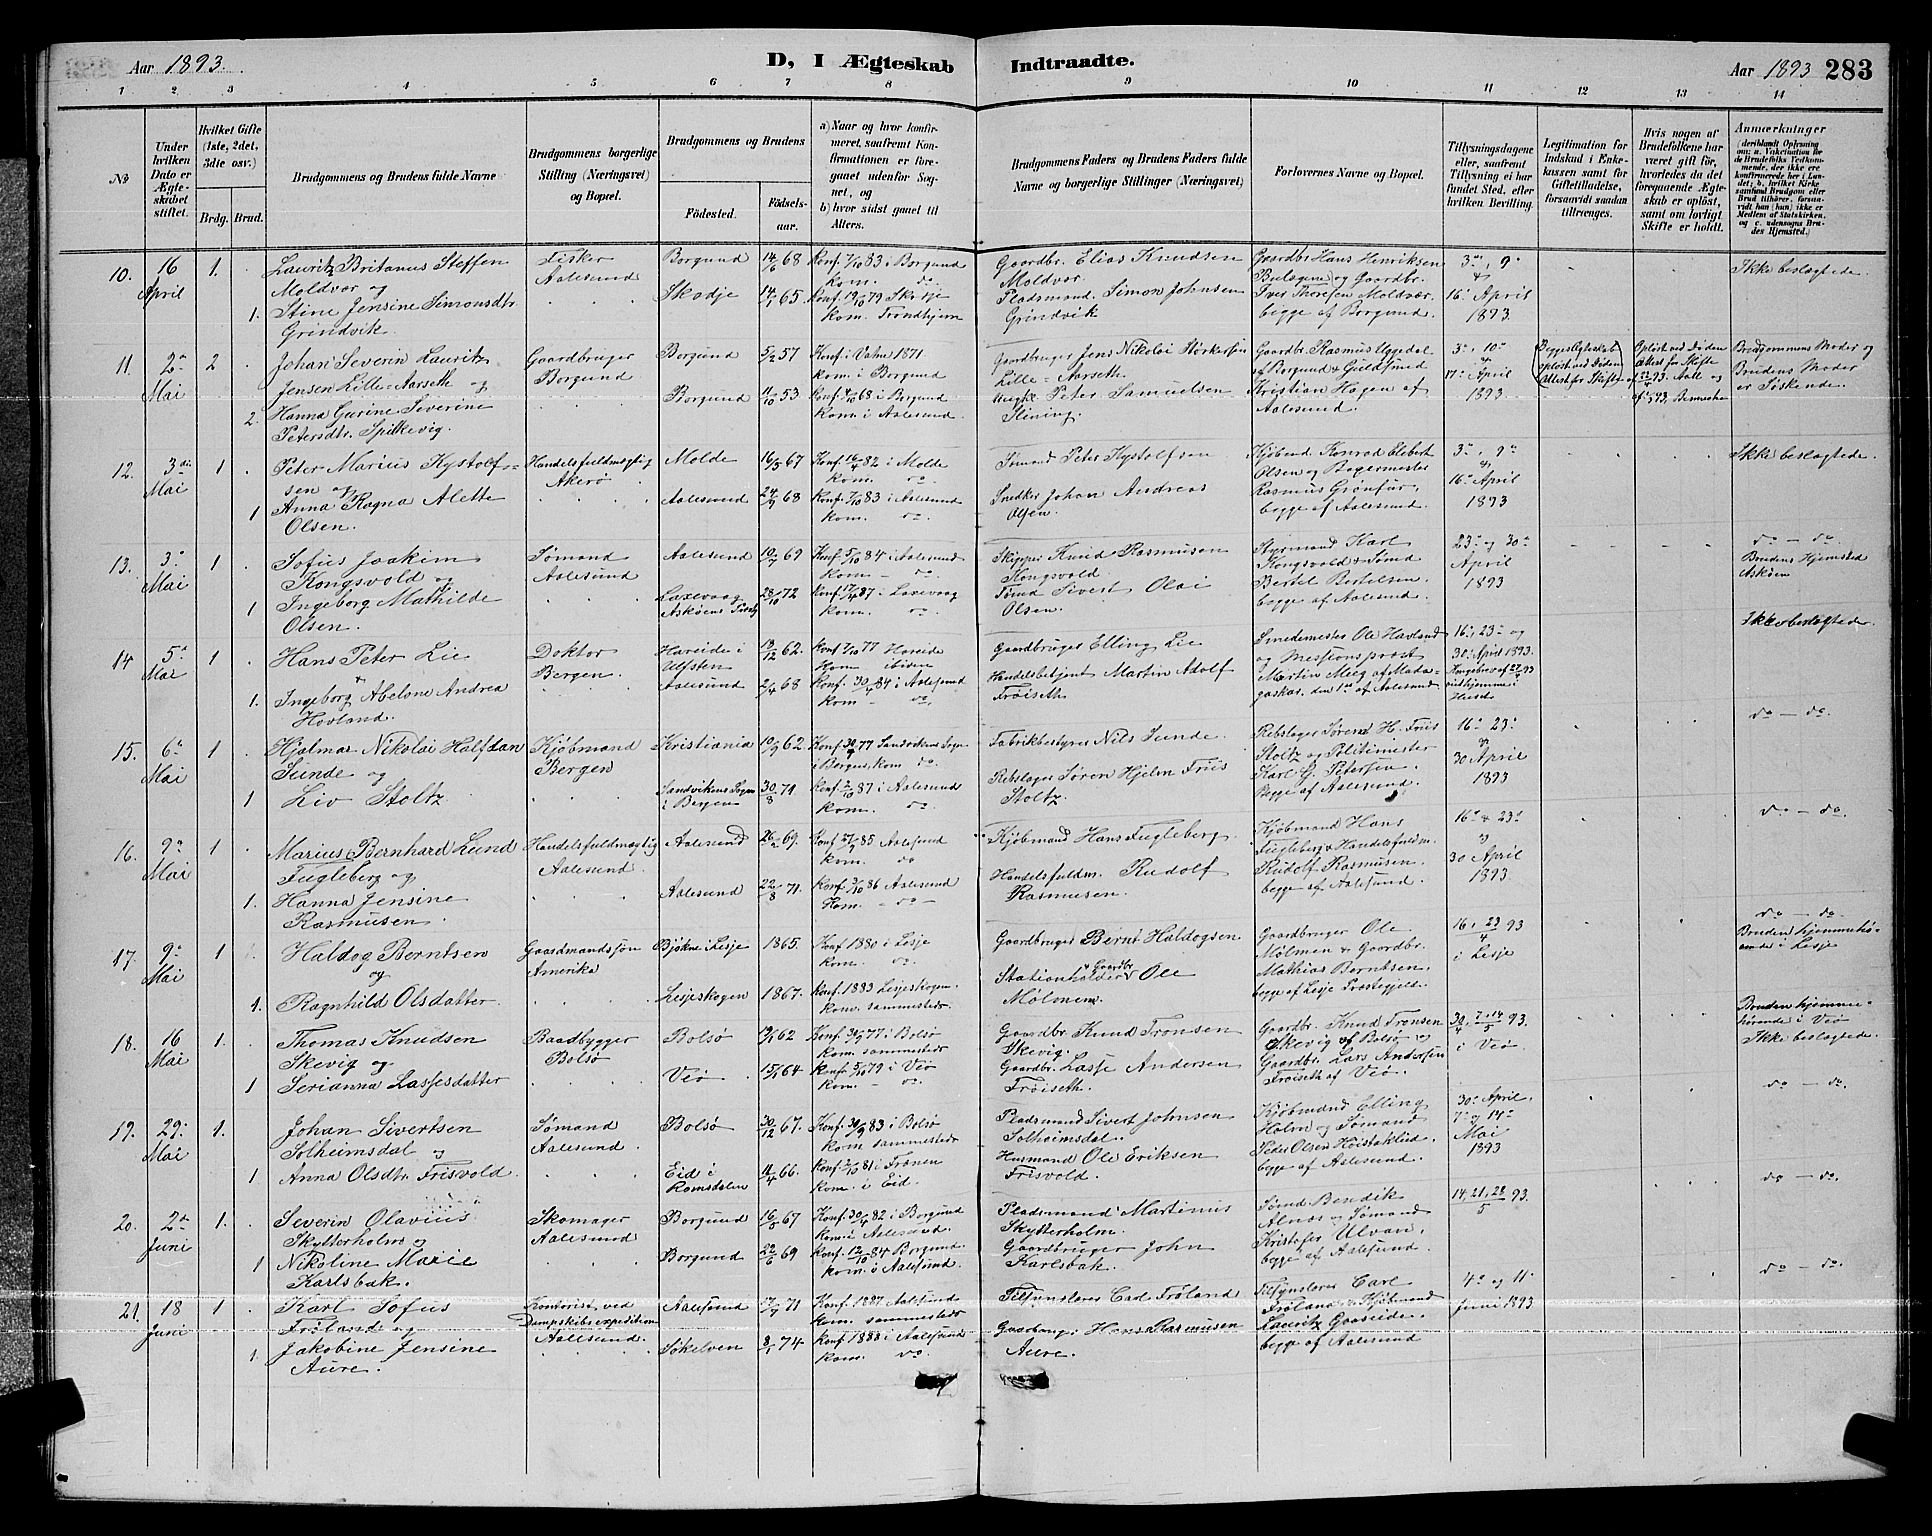 Aar 1893. D, I Ægteskab Indtraadte. Aar 1893 283
1 2 3 4 5 6 7 8 9 10 11 12 13 14
No
Under hvilken Dato er Ægteskabet stiftet.
Hvilket Gifte (1ste, 2det, 3die osv.)
Brdg. Brud.
Brudgommens og Brudens fulde Navne
Brudgommens borgerlige Stilling (Næringsvei) og Bopæl.
Brudgommens og Brudens
Födested.
Födselsaar.
a) Naar og hvor konfirmeret, saafremt Konfirmationen er foregaaet udenfor Sognet, og
b) hvor sidst gaaet til Alters.
Brudgommens Faders og Brudens Faders fulde Navne og borgerlige Stillinger (Næringsvei)
Forlovernes Navne og Bopæl.
Tillysningsdagene eller, saafremt Tillysning ei har fundet Sted, efter hvilken Bevilling.
Legitimation for Indskud i Enkekassen samt for Giftetilladelse, forsaavidt saadan tiltrænges.
Hvis nogen af Brudefolkene har været gift för, hvorledes da det foregaaende Ægteskab er oplöst, samt om lovligt Skifte er holdt.
Anmærkninger
(deriblandt Oplysning om: a. Vakcination for de Brudefolks Vedkommende, der ikke ere konfirmerede her i Landet; b. hvilket Kirkesamfund Brudgom eller Brud tilhörer, forsaavidt han (hun) ikke er Medlem af Statskirken, og c. udensogns Brudes Hjemsted.)
10. 16 April 1. 1.
Lauritz Britanus Steffen
Moldvær og
Stine Jensine Simonsdtr
Grindvik.
Fisker
Aalesund
Borgund 14/6 68
Skodje 14/1 65
Konf. 7/10 83 i Borgund
kom. do.
Konf. 19/10 79 Skodje
kom. Trondhjem
Gaardbr. Elias Knudsen
Moldvær
Pladsmand Simon Johnsen
Grindvik
Gaardbr. Hans Henriksen
og Gaardbr.
Iver Thoresen Moldvær.
begge af Borgund.
3die, 9de &
16de April
1893.
Ikke beslægtede.
11. 2den Mai 2 2.
Johan Severin Lauritz
Jensen Lille-Aarseth og
Hanna Gurine Severine
Petersdtr. Spilkevig.
Gaardbruger
Borgund
Borgund 5/2 57
Borgund 11/10 53
Konf. i Vatne 1871
kom. i Borgund
Konf. 4/10 68 i Borgund
kom. i Aalesund.
Gaardbruger Jens Nikolai
Lille-Aarseth.
Ungk. Peter Samuelsen
Slining.
Gaardbr. Rasmus Uggedal
af Borgund & Guldsmed
Kristian Hagen af
Aalesund.
3de, 10de &
17de April
1893
Begges Ægteskab
oplöst ved Döden
Attest for Skifte
Oplöst ved Döden
Attest for Skifte
Brudgommens Moder og
Brudens Moder
er Söskende.
12. 3die Mai 1 1
Peter Marius Kystolf-
sen og
Anna Ragna Alette
Olsen.
Handelsfuldmægtig
Akerö
Molde 16/5 67
Aalesund 24/9 68
Konf. 16/4 82 i Molde
kom. do.
Konf. 7/10 83 i Aalesund
kom. do.
Sömand Peter Kystolfsen
Snedker Johan Andreas
Olsen.
Kjöbmd. Konrad Elebert
Olsen og Bagermester
Rasmus Grönfur,
begge af Aalesund.
3de, 9de &
16de April
1893
Ikke beslægtede.
13. 3de Mai 1 1
Sofus Joakim
Kongsvold og
Ingeborg Mathilde
Olsen.
Sömand
Aalesund
Aalesund 19/7 69
Laxevaag
Asköens Prgj. 28/10 72
Konf. 5/10 84 i Aalesund
kom. do.
Konf. 17/4 87 i Laxevaag
kom. do.
Skipper Knud Rasmusen
Kongsvold.
Sömd Sivert Olai
Olsen.
Styrmand Karl
Kongsvold & Sömd
Bertel Bertelsen.
begge af Aalesund.
23de og 30de
April
1893
do - do.
Brudens Hjemsted
Asköen
14 5te Mai 1 1.
Hans Peter Lie
&
Ingeborg Abelone Andrea
Hovland.
Doktor
Bergen.
Hareide i
Ulfsten 13/12 62.
Aalesund 2/4 68
Konf. 7/10 77 Hareide
kom ibiden
Konf. 30/4 84 i Aalesund
kom - do.
Gaardbruger Elling Lie
Handelsbetjent Martin Adolf
Fröiseth
Smedemester Ole Havland
og Missionsprest
Martin Meeg af Mada-
gaskar. den 1ste af Aalesund
16de, 23de og
30de April 1893.
Ikke beslægtede.
15. 6te Mai 1 1
Hjalmar Nikolai Halfdan
Sunde og
Liv Stoltz
Kjöbmand
Bergen
Kristiania 19/9 62.
Sandvikens Sogn
i Bergen 30/8 71.
Konf. 30/9 77 Sandvikens Sogn
i Bergen, kom do.
Konf. 2/10 87 i Aalesund
kom. do.
Fabrikbestyrer Nils Sunde.
Rebslager Sören Hjelm Friis
Stoltz.
Rebslager Sörend H. Friis
Stoltz og Politimester
Karl G. Petersen.
Begge af Aalesund.
16de 23de &
30 April
1893
do - do.
16. 9de Mai 1 1.
Marius Bernhard Lund
Fugleberg og
Hanna Jensine
Rasmusen.
Handelsfuldmægtig
Aalesund.
Aalesund 26/2 69.
Aalesund 22/8 71.
Konf 27/9 85 Aalesund
kom. do
Konf. 3/10 86 Aalesund
Kom. - do -
Kjöbmand Hans Fugleberg.
Handelsfuldm. Rudolf
Rasmusen.
Kjöbmand Hans
Fugleberg & Handelsfuldm.
Rudolf Rasmusen.
begge af Aalesund.
16de & 23de &
30 April
1893.
do - do.
17. 9de Mai 1 1.
Haldog Berntsen
og
Ragnhild Olsdatter.
Gaardmandssön
Amerika
Bjökne i Lesje 1865.
Lesjeskogen 1867.
Konf 1880 i Lesje
kom. do.
Konf. 1883 Lesjeskogen.
kom. sammesteds
Gaardbruger Bernt Haldogsen
Stationholder & Gaardbr Ole
Mölmen.
Gaardbruger Ole
Mölmen & Gaardbr.
Mathias Berntsen.
begge af Lesje Prestegjeld.
16, 23/4 93
i Lesje
do - do.
Bruden hjemmehö-
rende i Lesje
18. 16 Mai 1. 1
Thomas Knudsen
Skevig og
Serianna Lassesdatter
Baadbygger
Bolsö
Bolsö 19/1 62
Veö 15/1 64
Konf. 30/9 77 i Bolsö
kom. sammesteds
Konf. 5/10 79 i Veö
kom. - do.
Gaardbr. Knud Tronsen
Skevig.
Gaardbr. Lasse Andersen
Fröiseth.
Gaardbr. Knud Tronsen
Skevig af Bolsö og
Gaardbr. Lars Andersen
Fröiseth af Veö.
30/4, 7 & 14/5 93.
i Veö.
Bruden hjemme-
hörende i Veö
Ikke beslægtede.
19. 29. Mai 1. 1
Johan Sivertsen
Solheimsdal og
Anna Olsdtr. Frisvold.
Sömand
Aalesund.
Bolsö 30/12 67.
Eid i
Romsdalen 4/4 66.
Konf. 30/9 83 i Bolsö
kom sammesteds
Konf. 2/10 81 i Frænen
kom. i Eid.
Pladsmand Sivert Johnsen
Solheimsdal.
Husmand Ole Eriksen
Frisvold.
Kjöbmand Elling
Holm og Sömand
Peder Olsen Höistaklid.
begge af Aalesund.
30de April
7de og 14de
Mai
1893
do - do.
20. 2den Juni 1. 1
Severin Olavius
Skytterholm og
Nikoline Marie
Karlsbak.
Skomager
Aalesund
Borgund 16/5 67
Borgund 22/6 69
Konf. 30/4 82 i Borgund
kom. i Aalesund.
Konf. 12/10 84 Borgund
kom. i Aalesund.
Pladsmand Martinus
Skytterholm.
Gaardbruger John
Karlsbak.
Sömd Bendik
Alnæs og Sömand
Kristofer Ulvan,
begge af Aalesund.
14, 21, 28/5 93.
do - do.
21. 18 Juni 1 1.
Karl Sofus
Fröland og
Jakobine Jensine
Aure.
Kontorist ved
Dampskibsexpedition
Aalesund.
Aalesund 17/9 71
Sökelven 8/1 74
Konf. 1887 Aalesund
kom. sammesteds
Konf 1888 i Aalesund
kom. do.
Tilsynslærer Carl Fröland
Gaardbruger Hans Rasmusen
Aure.
Tilsynslærer Carl
Fröland & Kjöbmand
Lauritz Gaaseide.
begge af Aalesund
4de og 11te
Juni 1893
do - do.